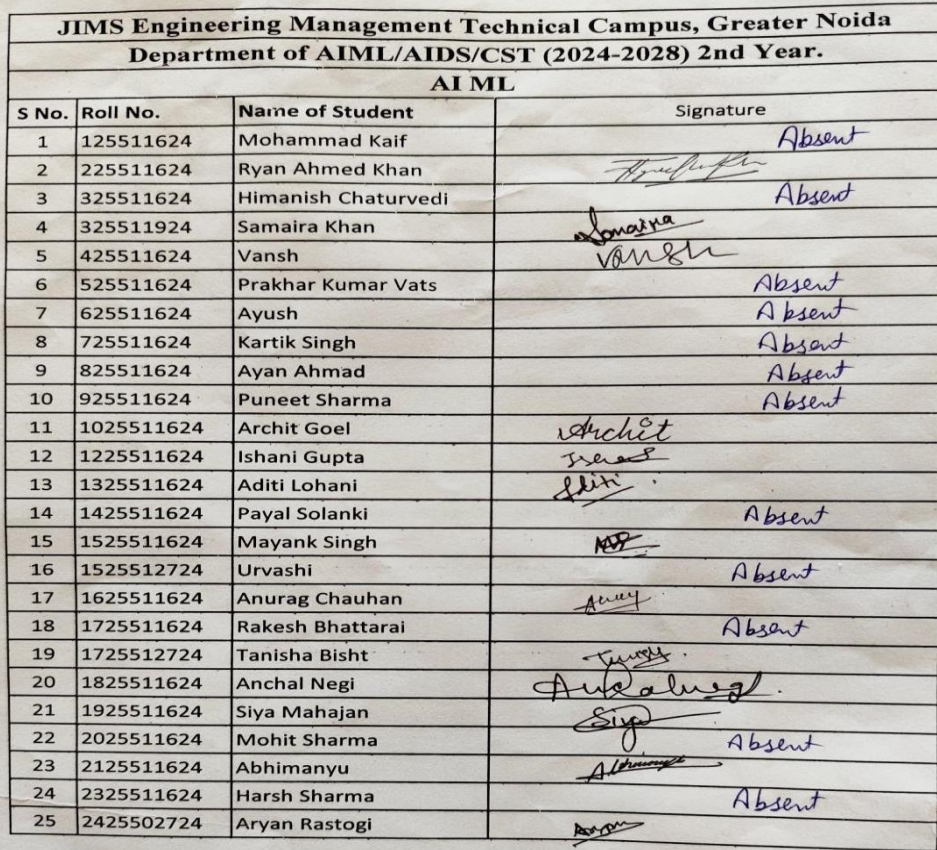 JIMS Engineering Management Technical Campus, Greater Noida
Department of AIML/AIDS/CST (2024-2028) 2nd Year.
AI ML
S No. Roll No. Name of Student Signature
1 125511624 Mohammad Kaif Absent
2 225511624 Ryan Ahmed Khan
3 325511624 Himanish Chaturvedi Absent
4 325511924 Samaira Khan Samaira
5 425511624 Vansh Vansh
6 525511624 Prakhar Kumar Vats Absent
7 625511624 Ayush Absent
8 725511624 Kartik Singh Absent
9 825511624 Ayan Ahmad Absent
10 925511624 Puneet Sharma Absent
11 1025511624 Archit Goel Archit
12 1225511624 Ishani Gupta
13 1325511624 Aditi Lohani Aditi
14 1425511624 Payal Solanki Absent
15 1525511624 Mayank Singh
16 1525512724 Urvashi Absent
17 1625511624 Anurag Chauhan
18 1725511624 Rakesh Bhattarai Absent
19 1725512724 Tanisha Bisht
20 1825511624 Anchal Negi
21 1925511624 Siya Mahajan Siya
22 2025511624 Mohit Sharma Absent
23 2125511624 Abhimanyu
24 2325511624 Harsh Sharma Absent
25 2425502724 Aryan Rastogi